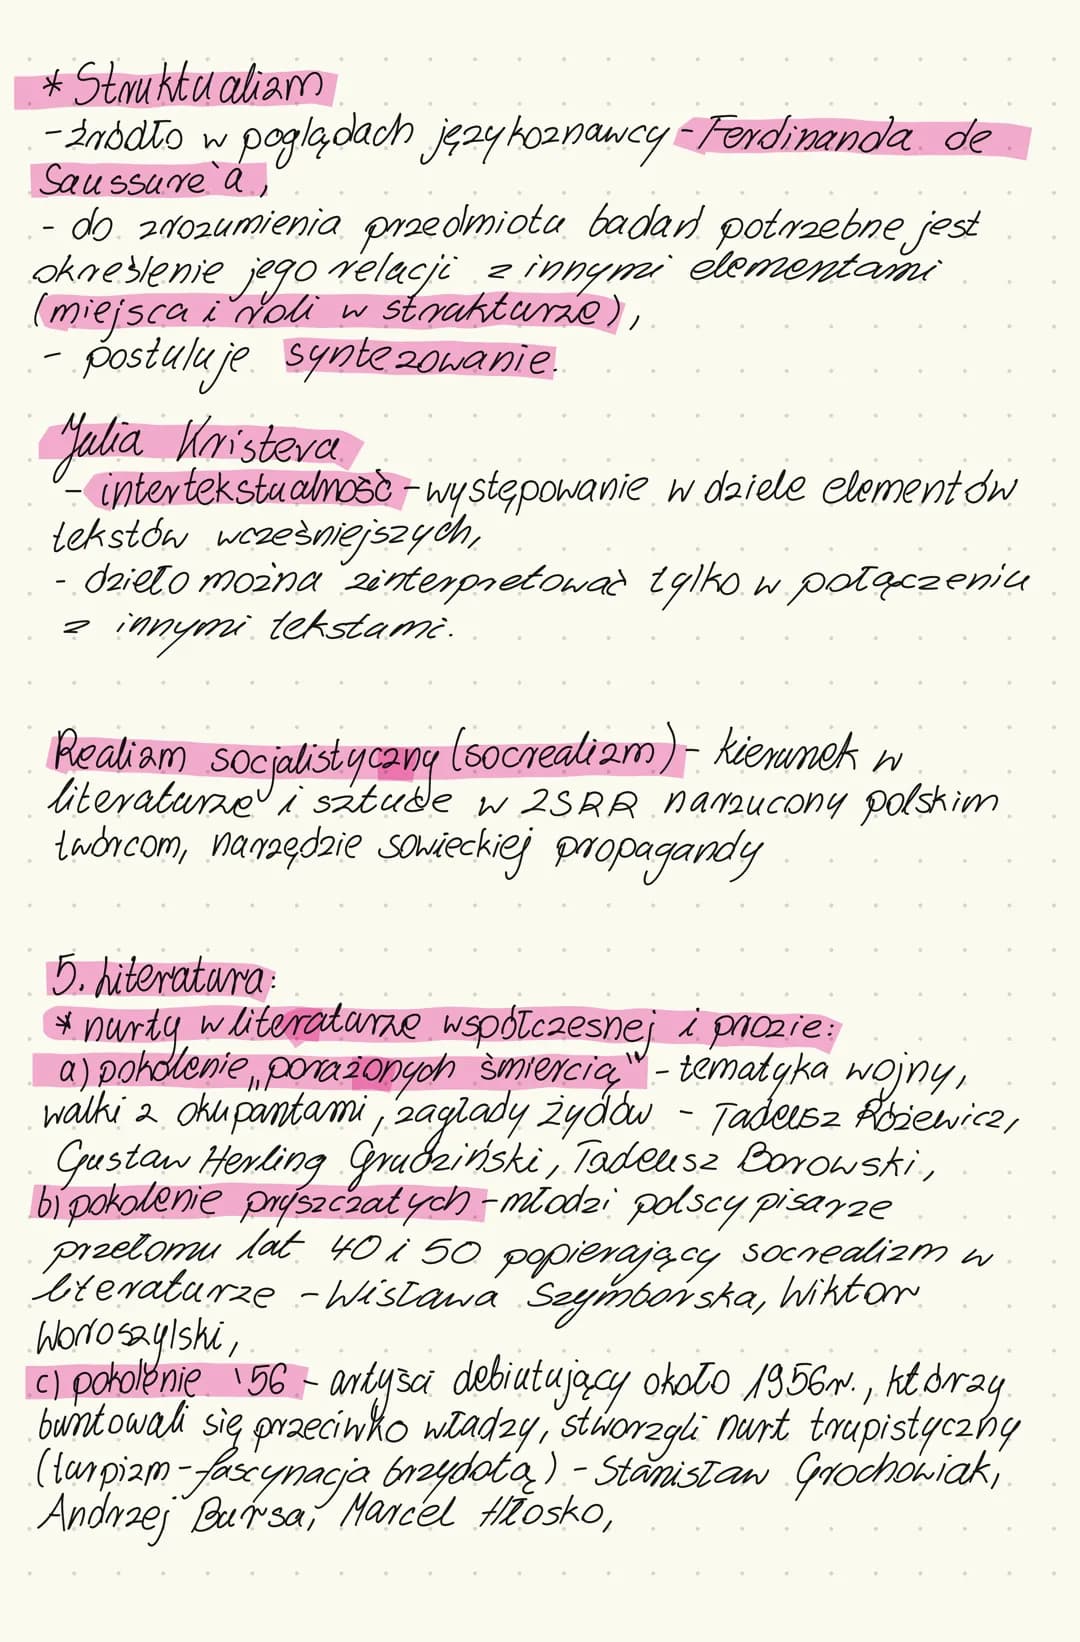 * Struktualizm
- źródło w poglądach językoznawcy - Ferdinanda de
Saussure`a,
- do zrozumienia przedmiotu badań potrzebne jest
określenie jego relacji z innymi elementami
(miejsca i roli w strukturze),
- postuluje syntezowanie.
Julia Kristeva
- intertekstualność - występowanie w dziele elementów
tekstów wcześniejszych,
- dzieło można zinterpretować tylko w połączeniu
z innymi tekstami.
Realizm socjalistyczny (socrealizm) - kierunek w
literaturze i sztuce w ZSRR narzucony polskim
twórcom, narzędzie sowieckiej propagandy
5. Literatura:
* nurty w literaturze współczesnej i prozie:
a) pokolenie „porażonych śmiercią" - tematyka wojny,
walki z okupantami, zagłady żydów - Tadeusz Różewicz,
Gustaw Herling Grudziński, Tadeusz Borowski,
b) pokolenie pryszczatych - młodzi polscy pisarze
przełomu lat 40 i 50 popierający socrealizm w
literaturze - Wisława Szymborska, Wiktor
Woroszylski,
c) pokolenie '56 - artyści debiutujący około 1956r., którzy
buntowali się przeciwko władzy, stworzyli nurt trupistyczny
(turpizm - fascynacja brzydotą) - Stanisław Grochowiak,
Andrzej Bursa, Marcel Hłosko,